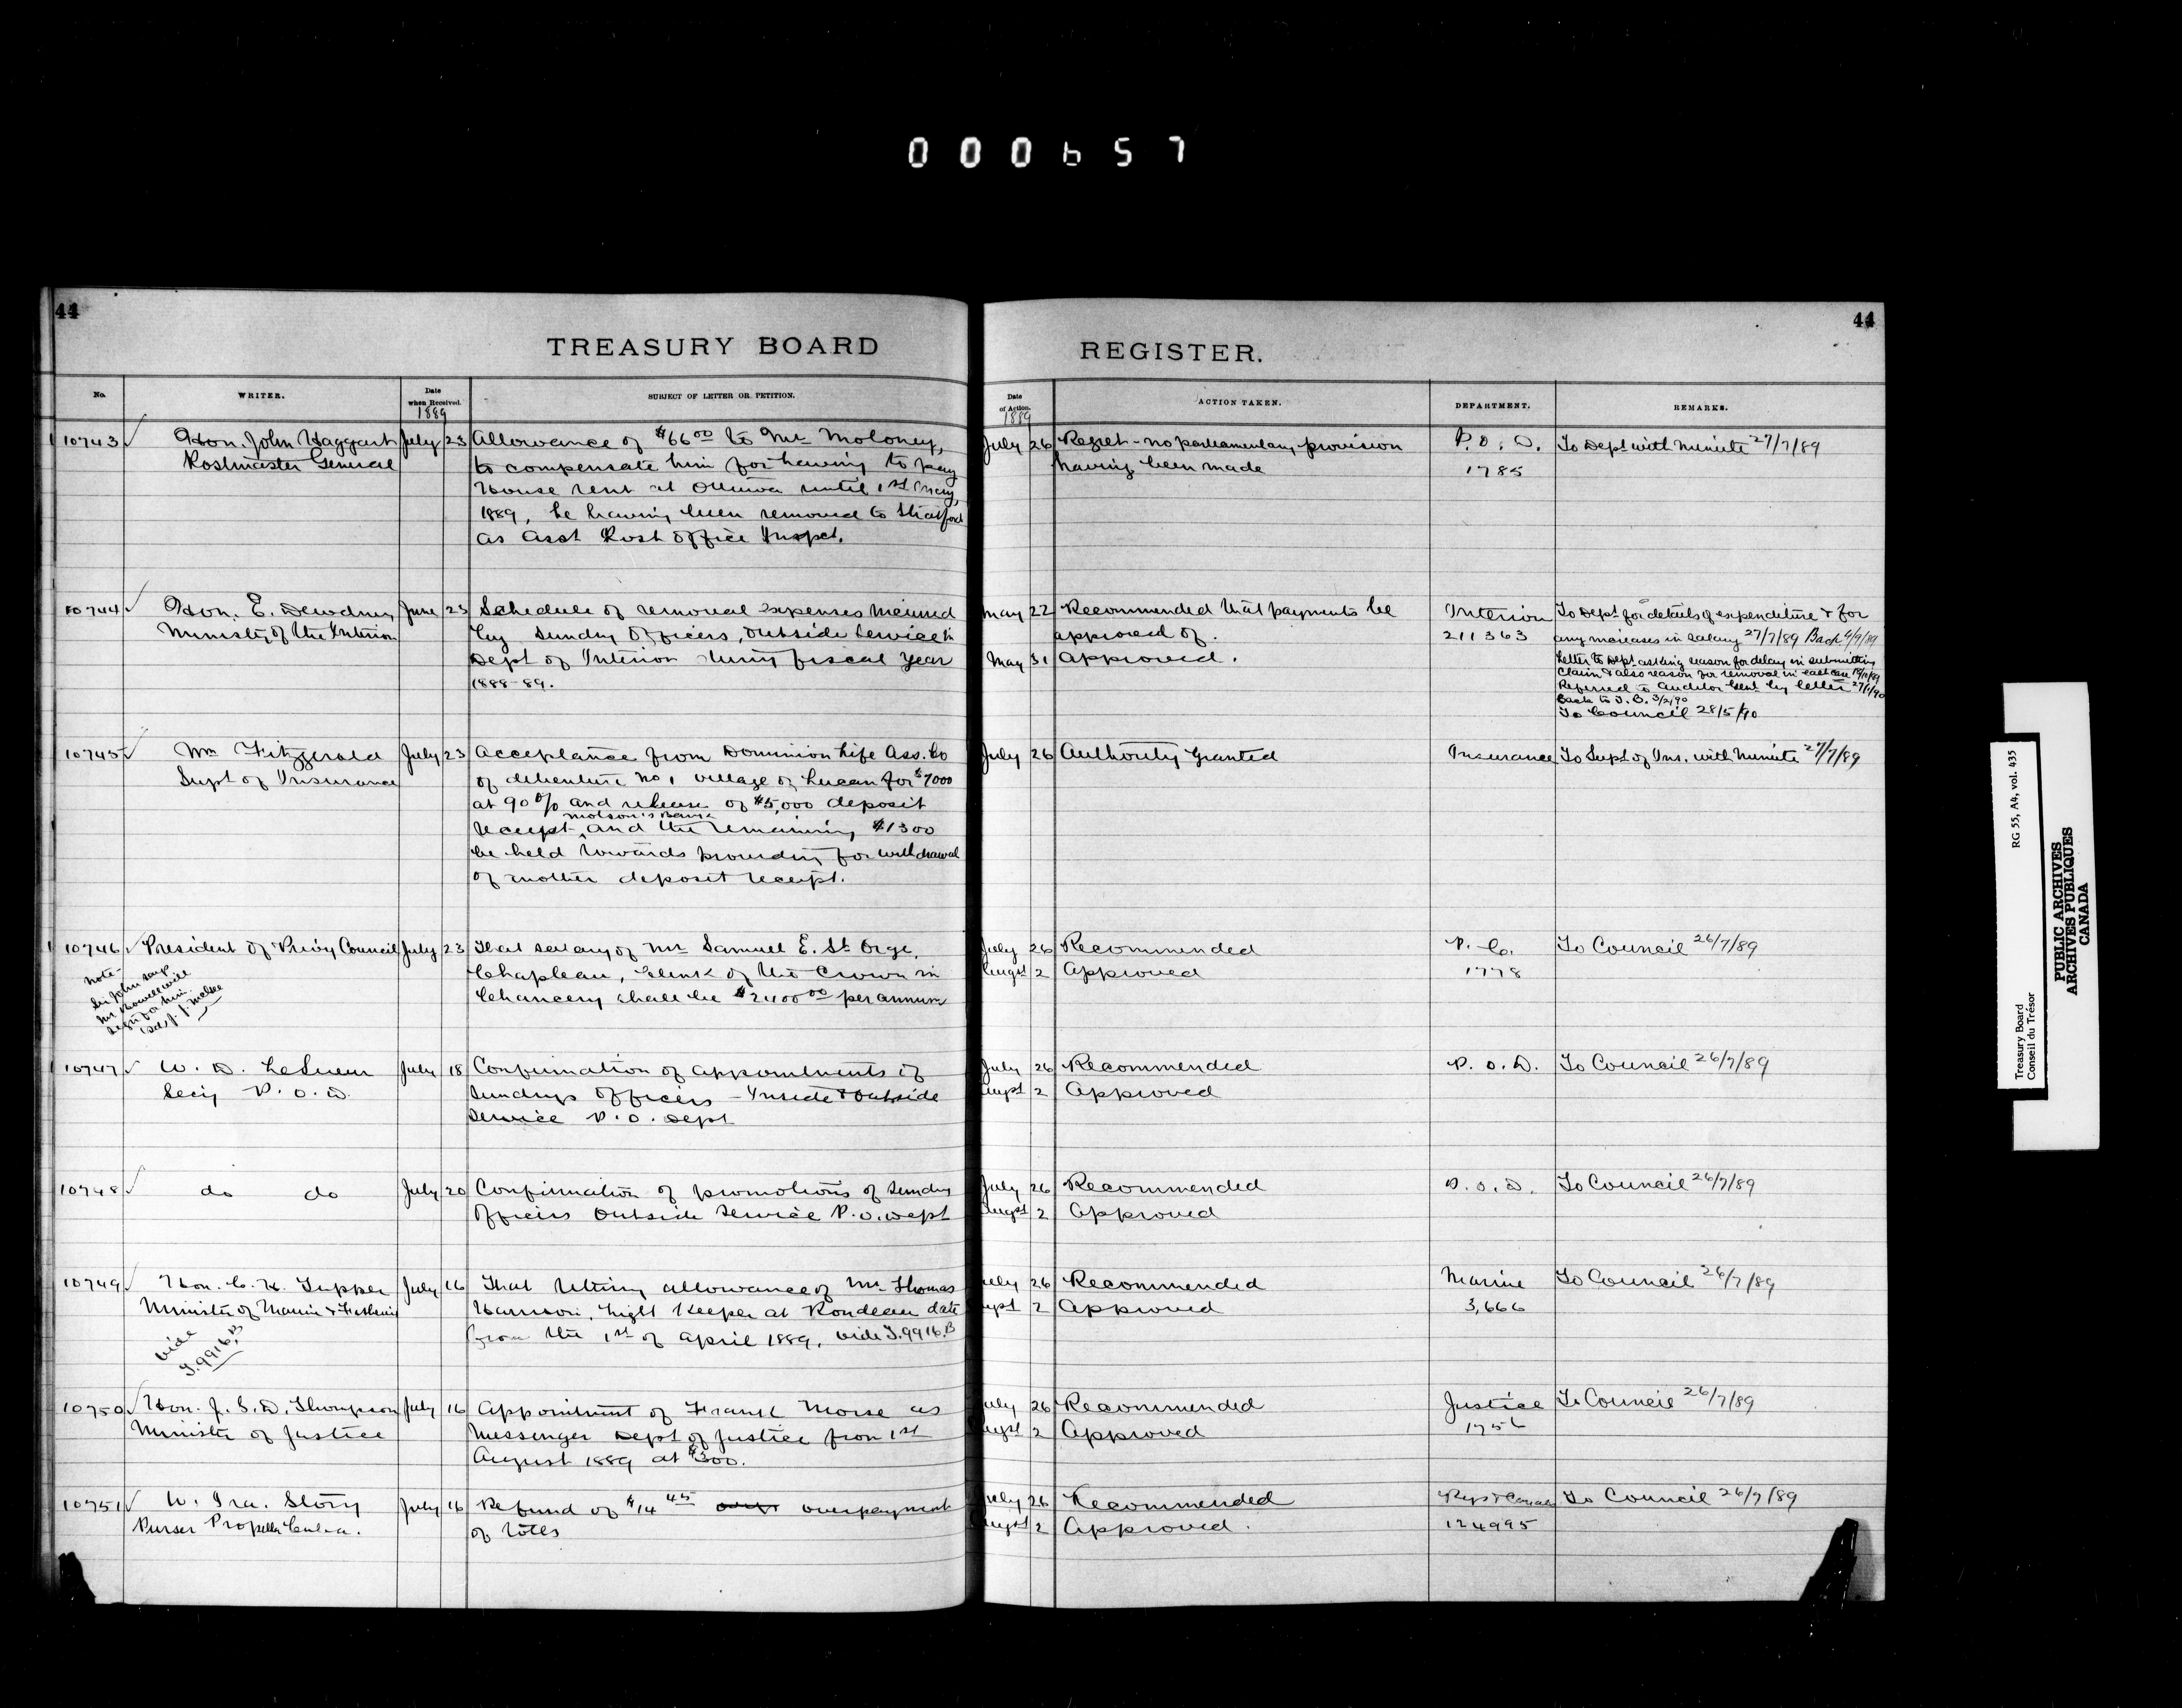 000657
44
44
TREASURY BOARD
REGISTER.
No.
WRITER.
Date when Received.
SUBJECT OF LETTER OR PETITION.
Date of Action.
ACTION TAKEN.
DEPARTMENT.
REMARKS.
1889
1889
10743 Hon. John Haggart July 23 Allowance of $66 00 to Mr Moloney, July 26 Regret - no parliamentary provision P. O. D. To Dept with minute 27/7/89
Postmaster General to compensate him for having to pay having been made 1785
House rent at Ottawa until 1st May,
1889, he having been removed to Stratford
as Asst Post Office Inspct.
10744 Hon. E. Dewdney June 23 Schedule of removal expenses incurred May 22 Recommended that payments be Interior To Dept for details of expenditure & for
Minister of the Interior by Sundry Officers, outside service in approved of. 211363 any increases in salary 27/7/89 Back 6/9/89
Dept of Interior during fiscal year May 31 Approved. Letter to Dept asking reason for delay in submitting
1888-89. claim & also reason for removal in each case
Referred to Auditor Genl by letter 27/1/90
Back to T. B. 3/2/90
To Council 28/5/90
10745 Wm Fitzgerald July 23 Acceptance from Dominion Life Ass. Co July 26 Authority Granted Insurance To Supt of Ins. with minute 27/7/89
Supt of Insurance of debenture No 1 village of Lucan for $7000
at 90% and release of $5,000 deposit
Molson's Bank
receipt, and the remaining $1300
be held towards providing for withdrawal
of another deposit receipt.
10746 President of Privy Council July 23 That salary of Mr Samuel E. St Orge. July 26 Recommended P. C. To Council 26/7/89
Chapleau, Clerk of the Crown in Augst 2 Approved 1778
Chancery shall be $2400 00 per annum
Note -
Sir John says
Mr Bowell will
sign for him.
10747 W. D. LeSueur July 18 Confirmation of appointments of July 26 Recommended P. O. D. To Council 26/7/89
Secy P. O. D. Sundry Officers - Inside & Outside Augst 2 Approved
Service P. O. Dept
10748 do do July 20 Confirmation of promotions of Sundry July 26 Recommended P. O. D. To Council 26/7/89
Officers Outside Service P. O. Dept Augst 2 Approved
10749 Hon. C. H. Tupper July 16 That retiring allowance of Mr Thomas July 26 Recommended Marine To Council 26/7/89
Minister of Marine & Fisheries Harrison, Light Keeper at Rondeau date Augst 2 Approved 3,666
from the 1st of April 1889. vide T.9916.B
vide
T.9916.B
10750 Hon. J. S. D. Thompson July 16 Appointment of Frank Morse as July 26 Recommended Justice To Council 26/7/89
Minister of Justice Messenger Dept of Justice from 1st Augst 2 Approved 1756
August 1889 at $300.
10751 W. Ira. Story July 16 Refund of $14 45 overpayment July 26 Recommended Rys & Canals To Council 26/7/89
Purser Propeller of tolls Augst 2 Approved. 124995
Treasury Board
Conseil du Trésor
RG 55, A4, vol. 435
PUBLIC ARCHIVES
ARCHIVES PUBLIQUES
CANADA